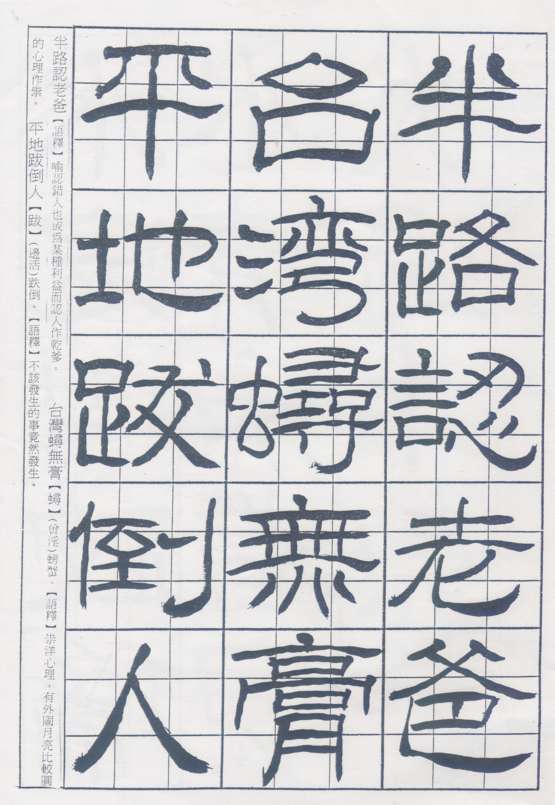 半路認老爸
台灣蟳無膏
平地跋倒人
半路認老爸【語釋】喻認錯人也或為某種利益而認人作乾爹。 台灣蟳無膏【蟳】(曾淫)螃蟹。【語釋】崇洋心理，有外國月亮比較圓
的心理作祟。 平地跋倒人【跋】(邊活)跌倒。【語釋】不該發生的事竟然發生。